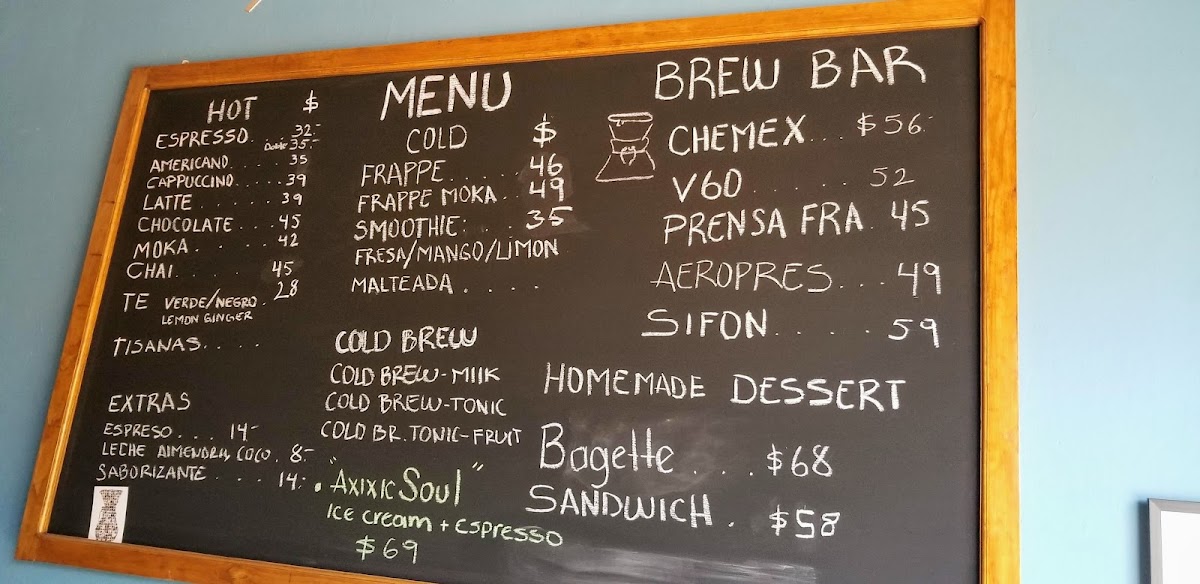 HOT $
ESPRESSO... 32.-
Doble 35.-
AMERICANO..... 35
CAPPUCCINO..... 39
LATTE....... 39
CHOCOLATE.... 45
MOKA...... 42
CHAI...... 45
TE VERDE/NEGRO. 28
LEMON GINGER
TISANAS.....
EXTRAS
ESPRESO... 14.-
LECHE ALMENDRA, COCO. 8.-
SABORIZANTE.... 14.-
MENU
COLD $
FRAPPE..... 46
FRAPPE MOKA.. 49
SMOOTHIE:... 35
FRESA/MANGO/LIMON
MALTEADA.....
COLD BREW
COLD BREW-MILK
COLD BREW-TONIC
COLD BR. TONIC-FRUIT
• "AXIXIC Soul"
Ice cream + Espresso
$69
BREW BAR
CHEMEX... $56.-
V60...... 52
PRENSA FRA. 45
AEROPRES... 49
SIFON..... 59
HOMEMADE DESSERT
Bagette... $68
SANDWICH. $58